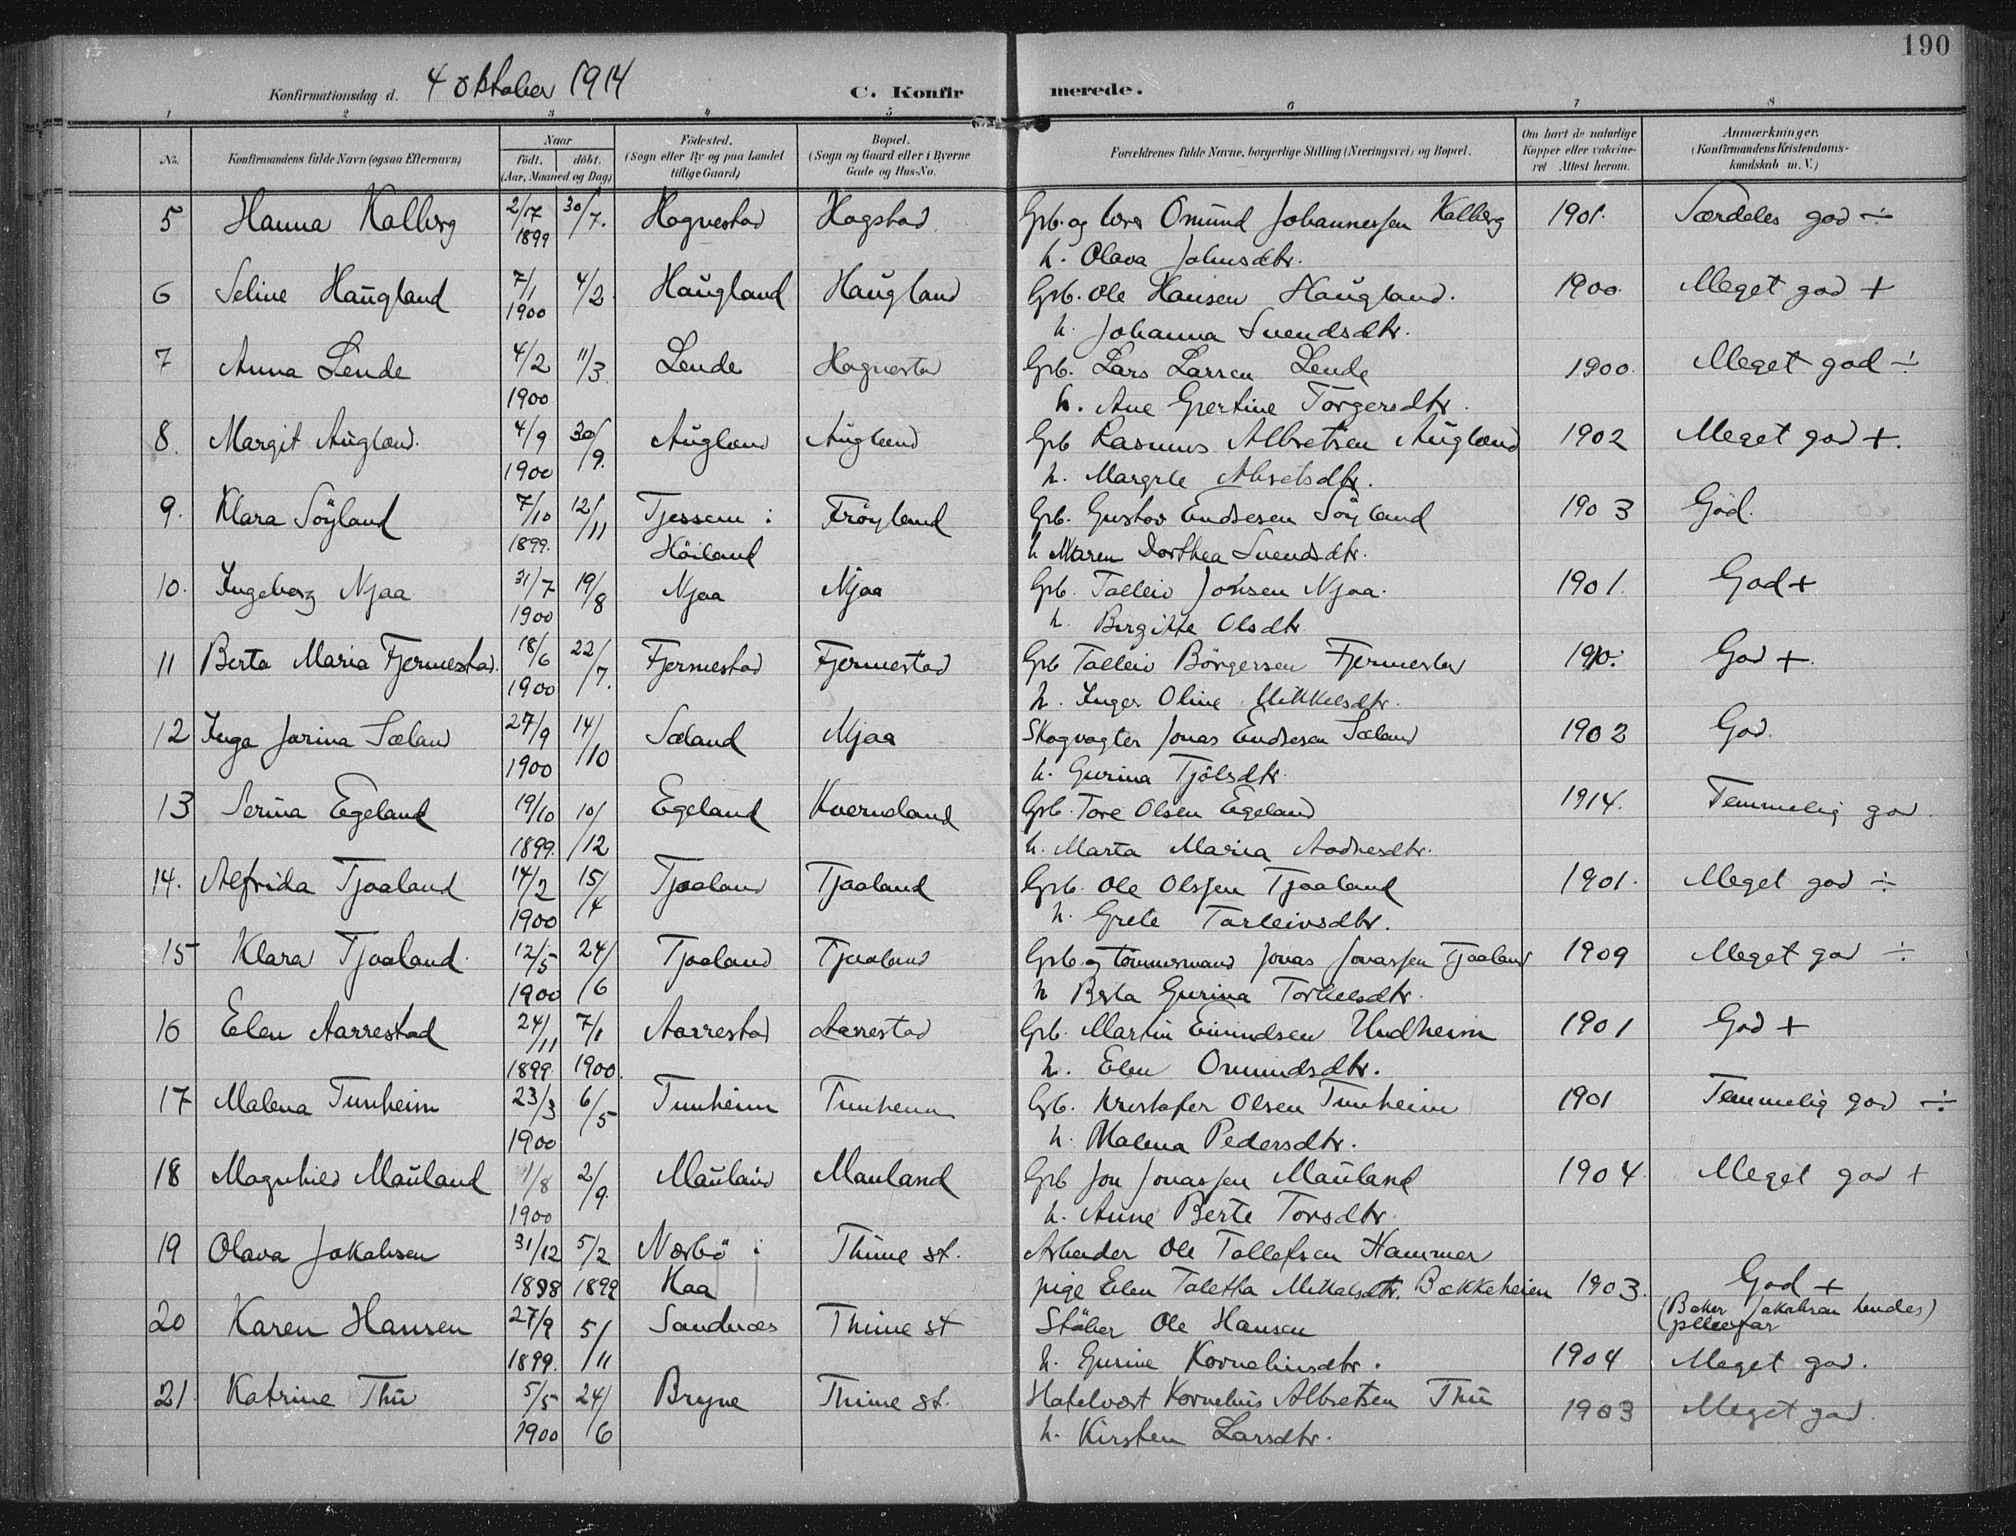 190
Konfirmationsdag d. 4 Oktober 1914 C. Konfirmerede.
1 2 3 4 5 6 7 8
No. Konfirmandens fulde Navn (ogsaa Efternavn) Naar Födested. Bopæl. Forældrenes fulde Navne, borgerlige Stilling (Næringsvei) og Bopæl. Om havt de naturlige Anmærkninger.
födt. döbt. (Sogn eller By og paa Landet (Sogn og Gaard eller i Byerne Kopper eller vakcine- (Konfirmandens Kristendoms-
(Aar, Maaned og Dag) tillige Gaard) Gade og Hus-No. ret Attest herom. kundskab m. V.)
5 Hanna Kalberg 2/17 30/7. Hognestad Hogstad Grb. og lærer Omund Johannessen Kalberg 1901. Særdeles god ÷
1899 h. Olava Johnsdtr.
6 Seline Haugland 7/1 4/2 Haugland Haugland Grb. Ole Hansen Haugland. 1900. Meget god +
1900 h. Johanna Svendsdtr.
7 Anna Lende 4/2 11/3 Lende Hognestad Grb. Lars Larsen Lende 1900. Meget god ÷
1900 h. Ane Gjertine Torgersdtr.
8. Margit Augland. 4/9 30/9. Augland Augland Grb Rasmus Albretsen Augland 1902 Meget god +.
1900 h. Margrete Albretsdtr.
9. Klara Söyland 7/10 12/11 Tjessem i Fröyland Grb. Gustav Endresen Söyland 1903 God.
1899. Höiland h Maren Dorthea Svendsdtr.
10. Ingeborg Njaa 31/7 19/8 Njaa Njaa Grb. Talleiv Jonsen Njaa. 1901. God +
1900 h. Birgitte Olsdtr
11 Berta Maria Fjermestad. 18/6 22/7. Fjermestad Fjermestad Grb Talleiv Börgersen Fjermestad God +.
1900 h. Inger Oline Mikkelsdtr.
12 Inga Jorina Sæland 27/9 14/10 Sæland Njaa Skogvogter Jonas Endresen Sæland 1902 God.
1900 h. Gurina Tjölsdtr.
13 Serina Egeland 19/10 10/12 Egeland Kverneland Grb. Tore Olsen Egeland 1914. Temmelig god.
1899. h. Marta Maria Aadnesdtr.
14. Alfrida Tjaaland 14/2 15/4 Tjaaland Tjaaland Grb. Ole Olssen Tjaaland 1901. Meget god ÷
1900 h. Grete Tarleivsdtr.
15 Klara Tjaaland. 12/5 24/6 Tjaaland Tjaaland Grb. og Tömmermand Jonas Jonassen Tjaaland 1909 Meget god ÷
1900 h Berta Gurina Torkelsdtr.
16 Elen Aarrestad 24/11 7/1 Aarrestad Aarrestad Grb. Martin Eimundsen Undheim 1901 God +
1899. 1900. h. Elen Omundsdtr.
17 Malena Tunheim 23/3 6/5 Tunheim Tunheim Grb. Kristofer Olsen Tunheim 1901 Temmelig god ÷
1900 h. Malena Pedersdtr.
18 Magnhild Mauland 1/8 2/9. Mauland Mauland Grb Jon Jonassen Mauland 1904. Meget god +
1900 h. Anne Berte Torsdtr.
19 Olava Jakobsen 31/12 5/2 Nærbö i Thime st. Arbeider Ole Tollefsen Hammer
1898 1899 Haa pige Elen Taletta Mikkelsdtr. Bækkeheien 1903. God +
(Baker Jakobsen hendes)
pleiefar
20 Karen Hansen 27/9 5/11 Sandnæs Thime st Stöber Ole Hansen
1899. h. Gurine Korneliusdtr. 1904 Meget god.
21. Katrine Thu 5/5 24/6 Bryne Thime st. Hotelvært Kornelius Albretsen Thu 1903 Meget god.
1900 h. Kirsten Larsdtr.